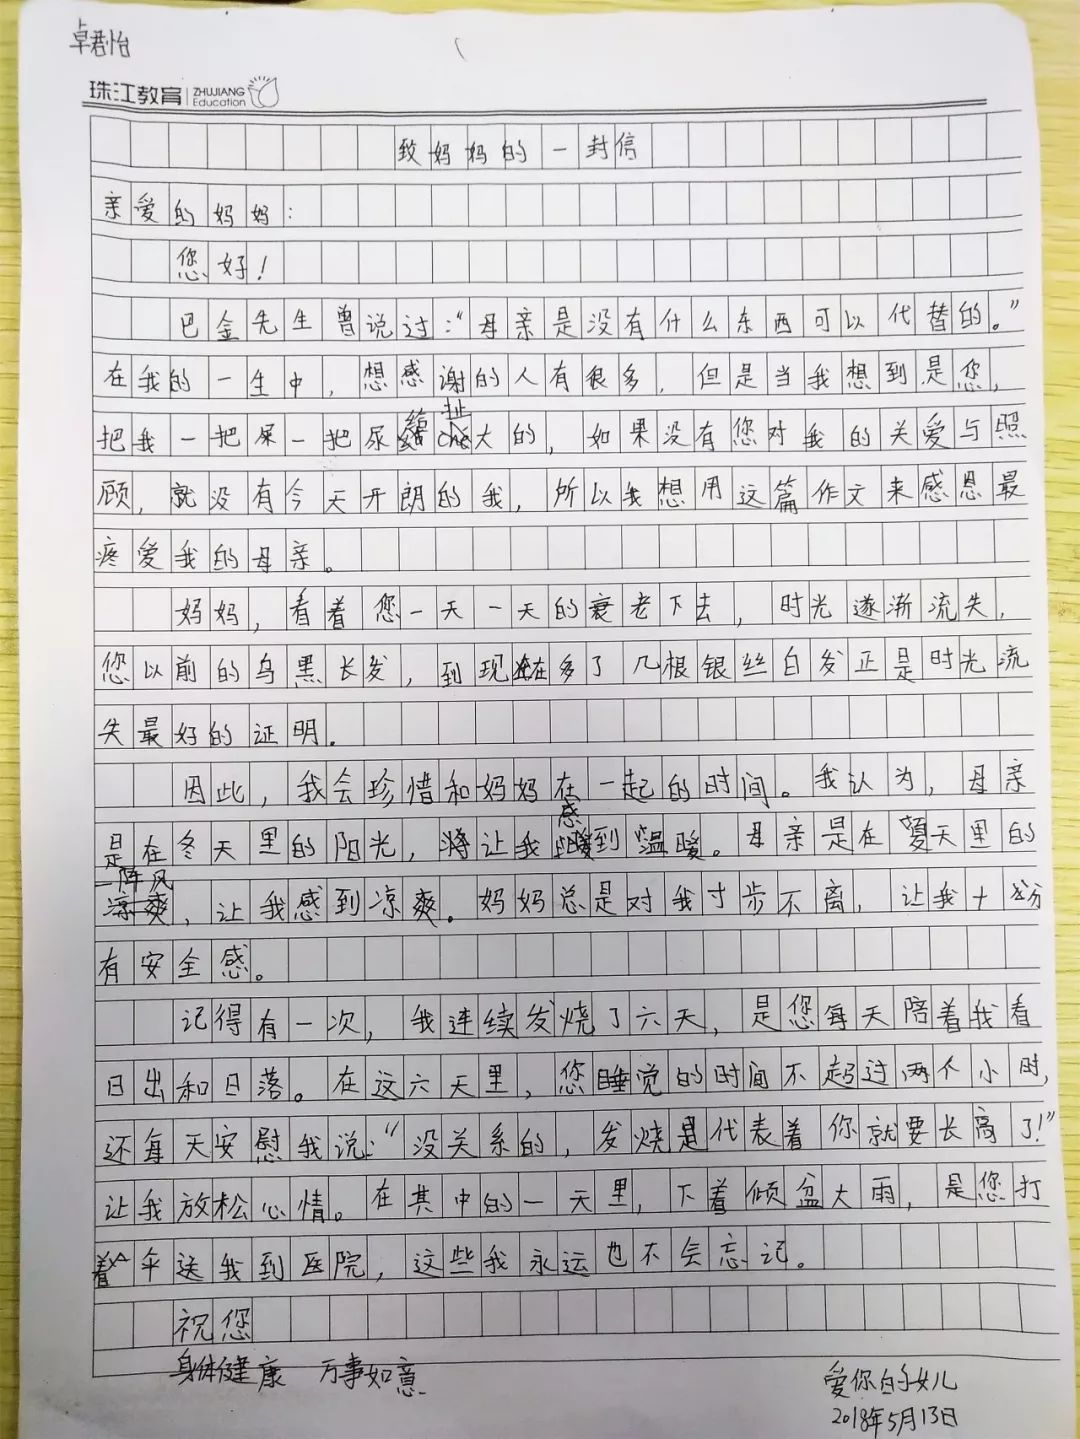 卓君怡
珠江教育 ZHUJIANG Education
致妈妈的一封信
亲爱的妈妈：
您好！
巴金先生曾说过：“母亲是没有什么东西可以代替的。”
在我的一生中，想感谢的人有很多，但是当我想到是您，
把我一把屎一把尿给扯大的，如果没有您对我的关爱与照
顾，就没有今天开朗的我，所以我想用这篇作文来感恩最
疼爱我的母亲。
妈妈，看着您一天一天的衰老下去，时光逐渐流失，
您以前的乌黑长发，到现在多了几根银丝白发正是时光流
失最好的证明。
因此，我会珍惜和妈妈在一起的时间。我认为，母亲
是在冬天里的阳光，将让我感到温暖。母亲是在夏天里的
一阵风，让我感到凉爽。妈妈总是对我寸步不离，让我十分
有安全感。
记得有一次，我连续发烧了六天，是您每天陪着我看
日出和日落。在这六天里，您睡觉的时间不超过两个小时，
还每天安慰我说：“没关系的，发烧是代表着你就要长高了！”
让我放松心情。在其中的一天里，下着倾盆大雨，是您打
着伞送我到医院，这些我永远也不会忘记。
祝您
身体健康 万事如意
爱你的女儿
2018年5月13日